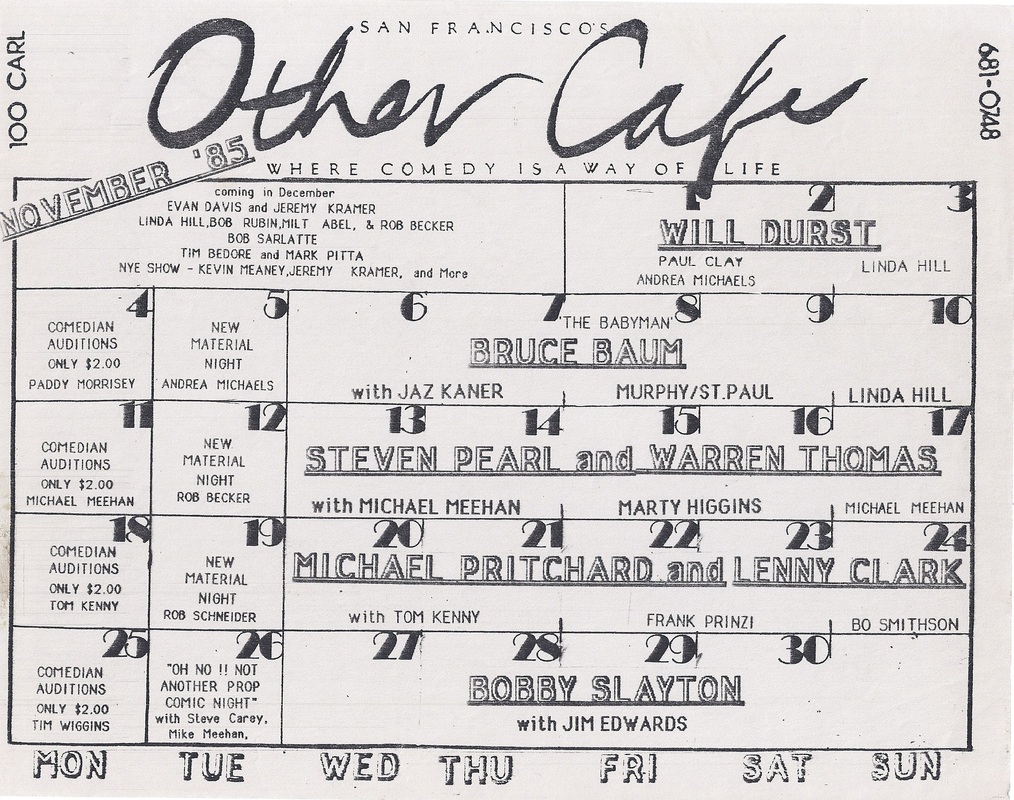 SAN FRANCISCO'S
100 CARL
Other Cafe
681-0748
NOVEMBER '85
WHERE COMEDY IS A WAY OF LIFE
coming in December
EVAN DAVIS and JEREMY KRAMER
LINDA HILL,BOB RUBIN,MILT ABEL, & ROB BECKER
BOB SARLATTE
TIM BEDORE and MARK PITTA
NYE SHOW - KEVIN MEANEY,JEREMY KRAMER, and More
1 2 3
WILL DURST
PAUL CLAY LINDA HILL
ANDREA MICHAELS
4 5 6 7 8 9 10
COMEDIAN
AUDITIONS
ONLY $2.00
PADDY MORRISEY
NEW
MATERIAL
NIGHT
ANDREA MICHAELS
'THE BABYMAN'
BRUCE BAUM
with JAZ KANER MURPHY/ST.PAUL LINDA HILL
11 12 13 14 15 16 17
COMEDIAN
AUDITIONS
ONLY $2.00
MICHAEL MEEHAN
NEW
MATERIAL
NIGHT
ROB BECKER
STEVEN PEARL and WARREN THOMAS
with MICHAEL MEEHAN MARTY HIGGINS MICHAEL MEEHAN
18 19 20 21 22 23 24
COMEDIAN
AUDITIONS
ONLY $2.00
TOM KENNY
NEW
MATERIAL
NIGHT
ROB SCHNEIDER
MICHAEL PRITCHARD and LENNY CLARK
with TOM KENNY FRANK PRINZI BO SMITHSON
25 26 27 28 29 30
COMEDIAN
AUDITIONS
ONLY $2.00
TIM WIGGINS
"OH NO !! NOT
ANOTHER PROP
COMIC NIGHT"
with Steve Carey,
Mike Meehan,
BOBBY SLAYTON
with JIM EDWARDS
MON TUE WED THU FRI SAT SUN